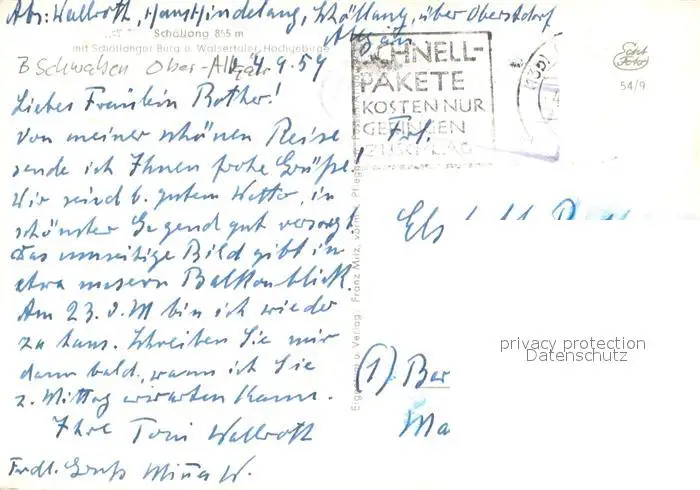 Abs: Wallroth, Haus Hindelang, Schöllang, über Oberstdorf
Allgäu
Schöllang 865 m
mit Schöllanger Burg u. Walsertaler Hochgebirge
B Schwaben Ober-Allgäu 4.9.59
SCHNELL-
PAKETE
KOSTEN NUR
GERINGEN
ZUSCHLAG
Echt Foto
54/9
Liebes Fräulein Rother!
Von meiner schönen Reise
sende ich Ihnen frohe Grüße,
Wir sind b. gutem Wetter, in
schönster Gegend gut versorgt.
Das umseitige Bild gibt in
etwa unseren Balkonblick.
Am 23. d. M bin ich wieder
zu haus. Schreiben Sie mir
dann bald, wann ich Sie
z. Mittag erwarten kann.
Ihre Toni Wallroth
Frdl. Gruß Mina W.
Eigentum u. Verlag: Franz Milz, vorm.
Frl.
(1) Ber
Ma
privacy protection
Datenschutz